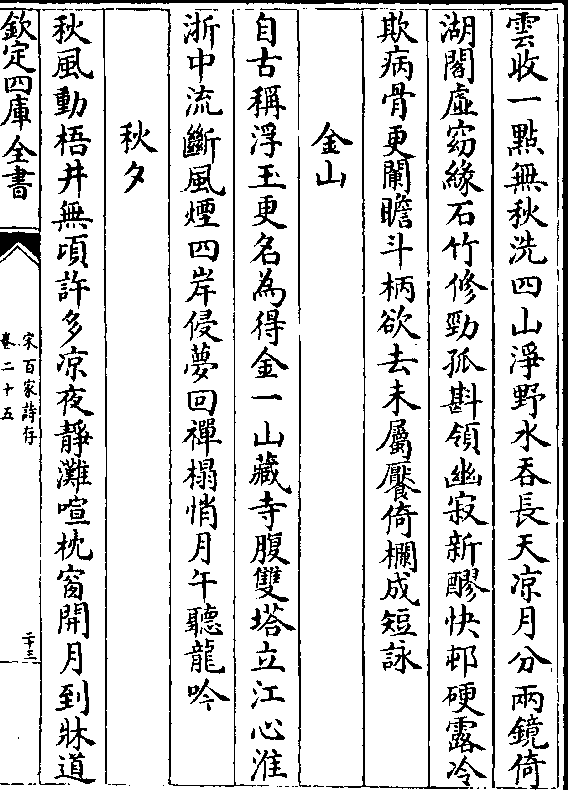 雲收一點無秋洗四山淨野水吞長天凉月分兩鏡倚
湖閣虛窈緣石竹修勁孤斟領幽寂新醪快邨硬露冷
欺病骨更闌瞻斗柄欲去未屬饜倚欄成短詠
金山
自古稱浮玉更名為得金一山藏寺腹雙塔立江心淮
浙中流斷風煙四岸侵夢回禪榻悄月午聽龍吟
秋夕
秋風動梧井無頃許多凉夜靜灘喧枕窗開月到牀道
欽定四庫全書
宋百家詩存
卷二十五
二十三